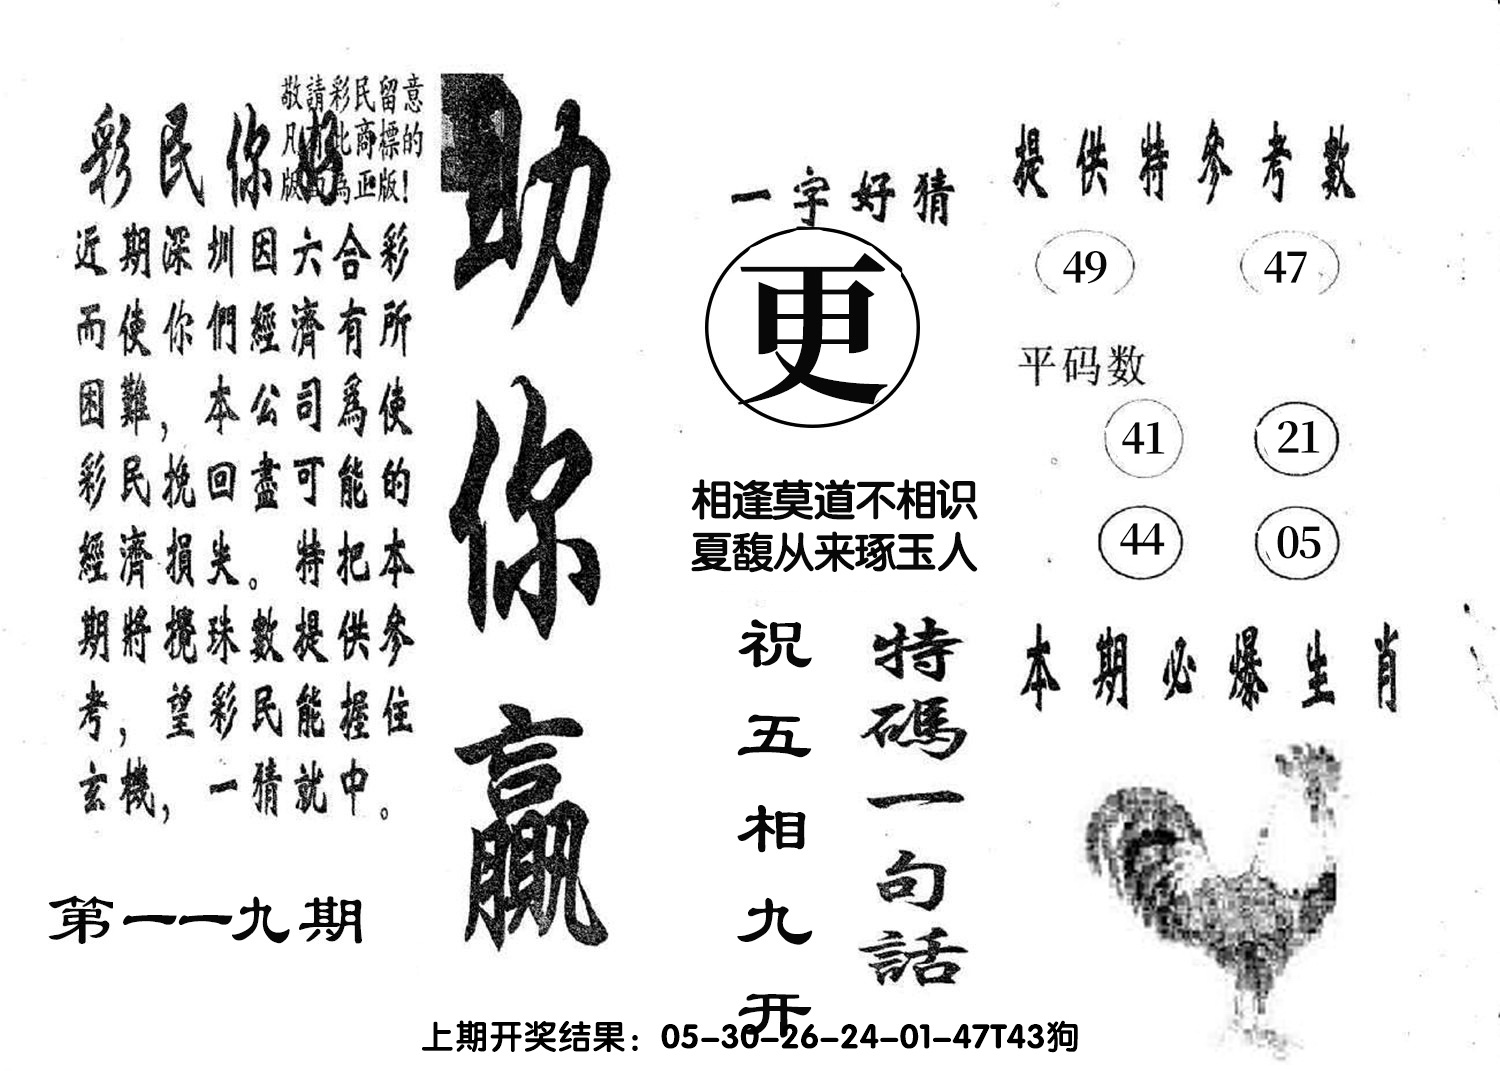 敬請彩民留意
凡有此商標的
版面為正版!
彩民你好
近期深圳因六合彩
而使你們經濟有所
困難，本公司爲使
彩民挽回盡可能的
經濟損失。特把本
期將攪珠數提供參
考，望彩民能握住
玄機，一猜就中。
第一一九期
助你赢
一字好猜
更
相逢莫道不相识
夏馥从来琢玉人
特碼一句話
祝五相九开
提供特參考數
49 47
平码数
41 21
44 05
本期必爆生肖
上期开奖结果：05-30-26-24-01-47T43狗